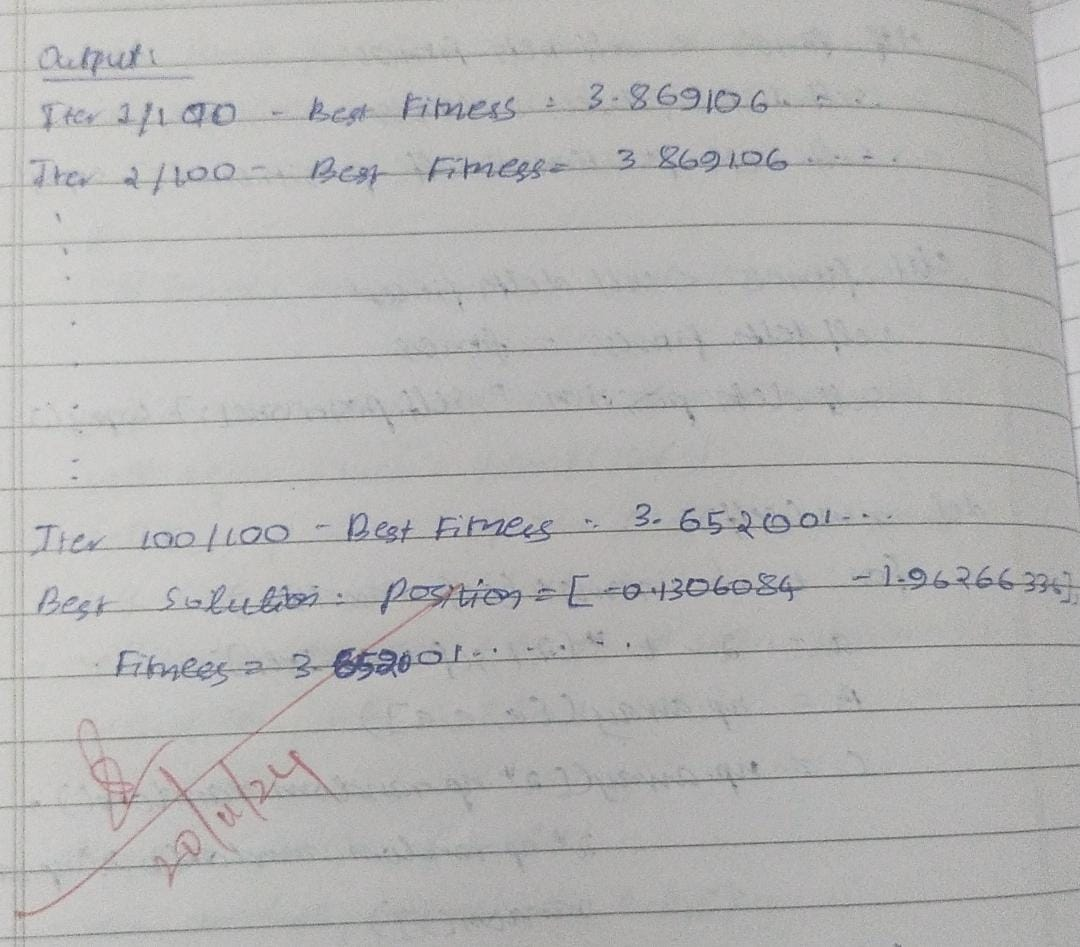 Output:
Iter 1/100 - Best Fitness = 3.869106.....
Iter 2/100 - Best Fitness = 3 869106.....
Iter 100/100 - Best Fitness = 3.652001...
Best Solution: Position = [-0.1306084 -1.96266336]
Fitness = 3.652001.......
20/11/24